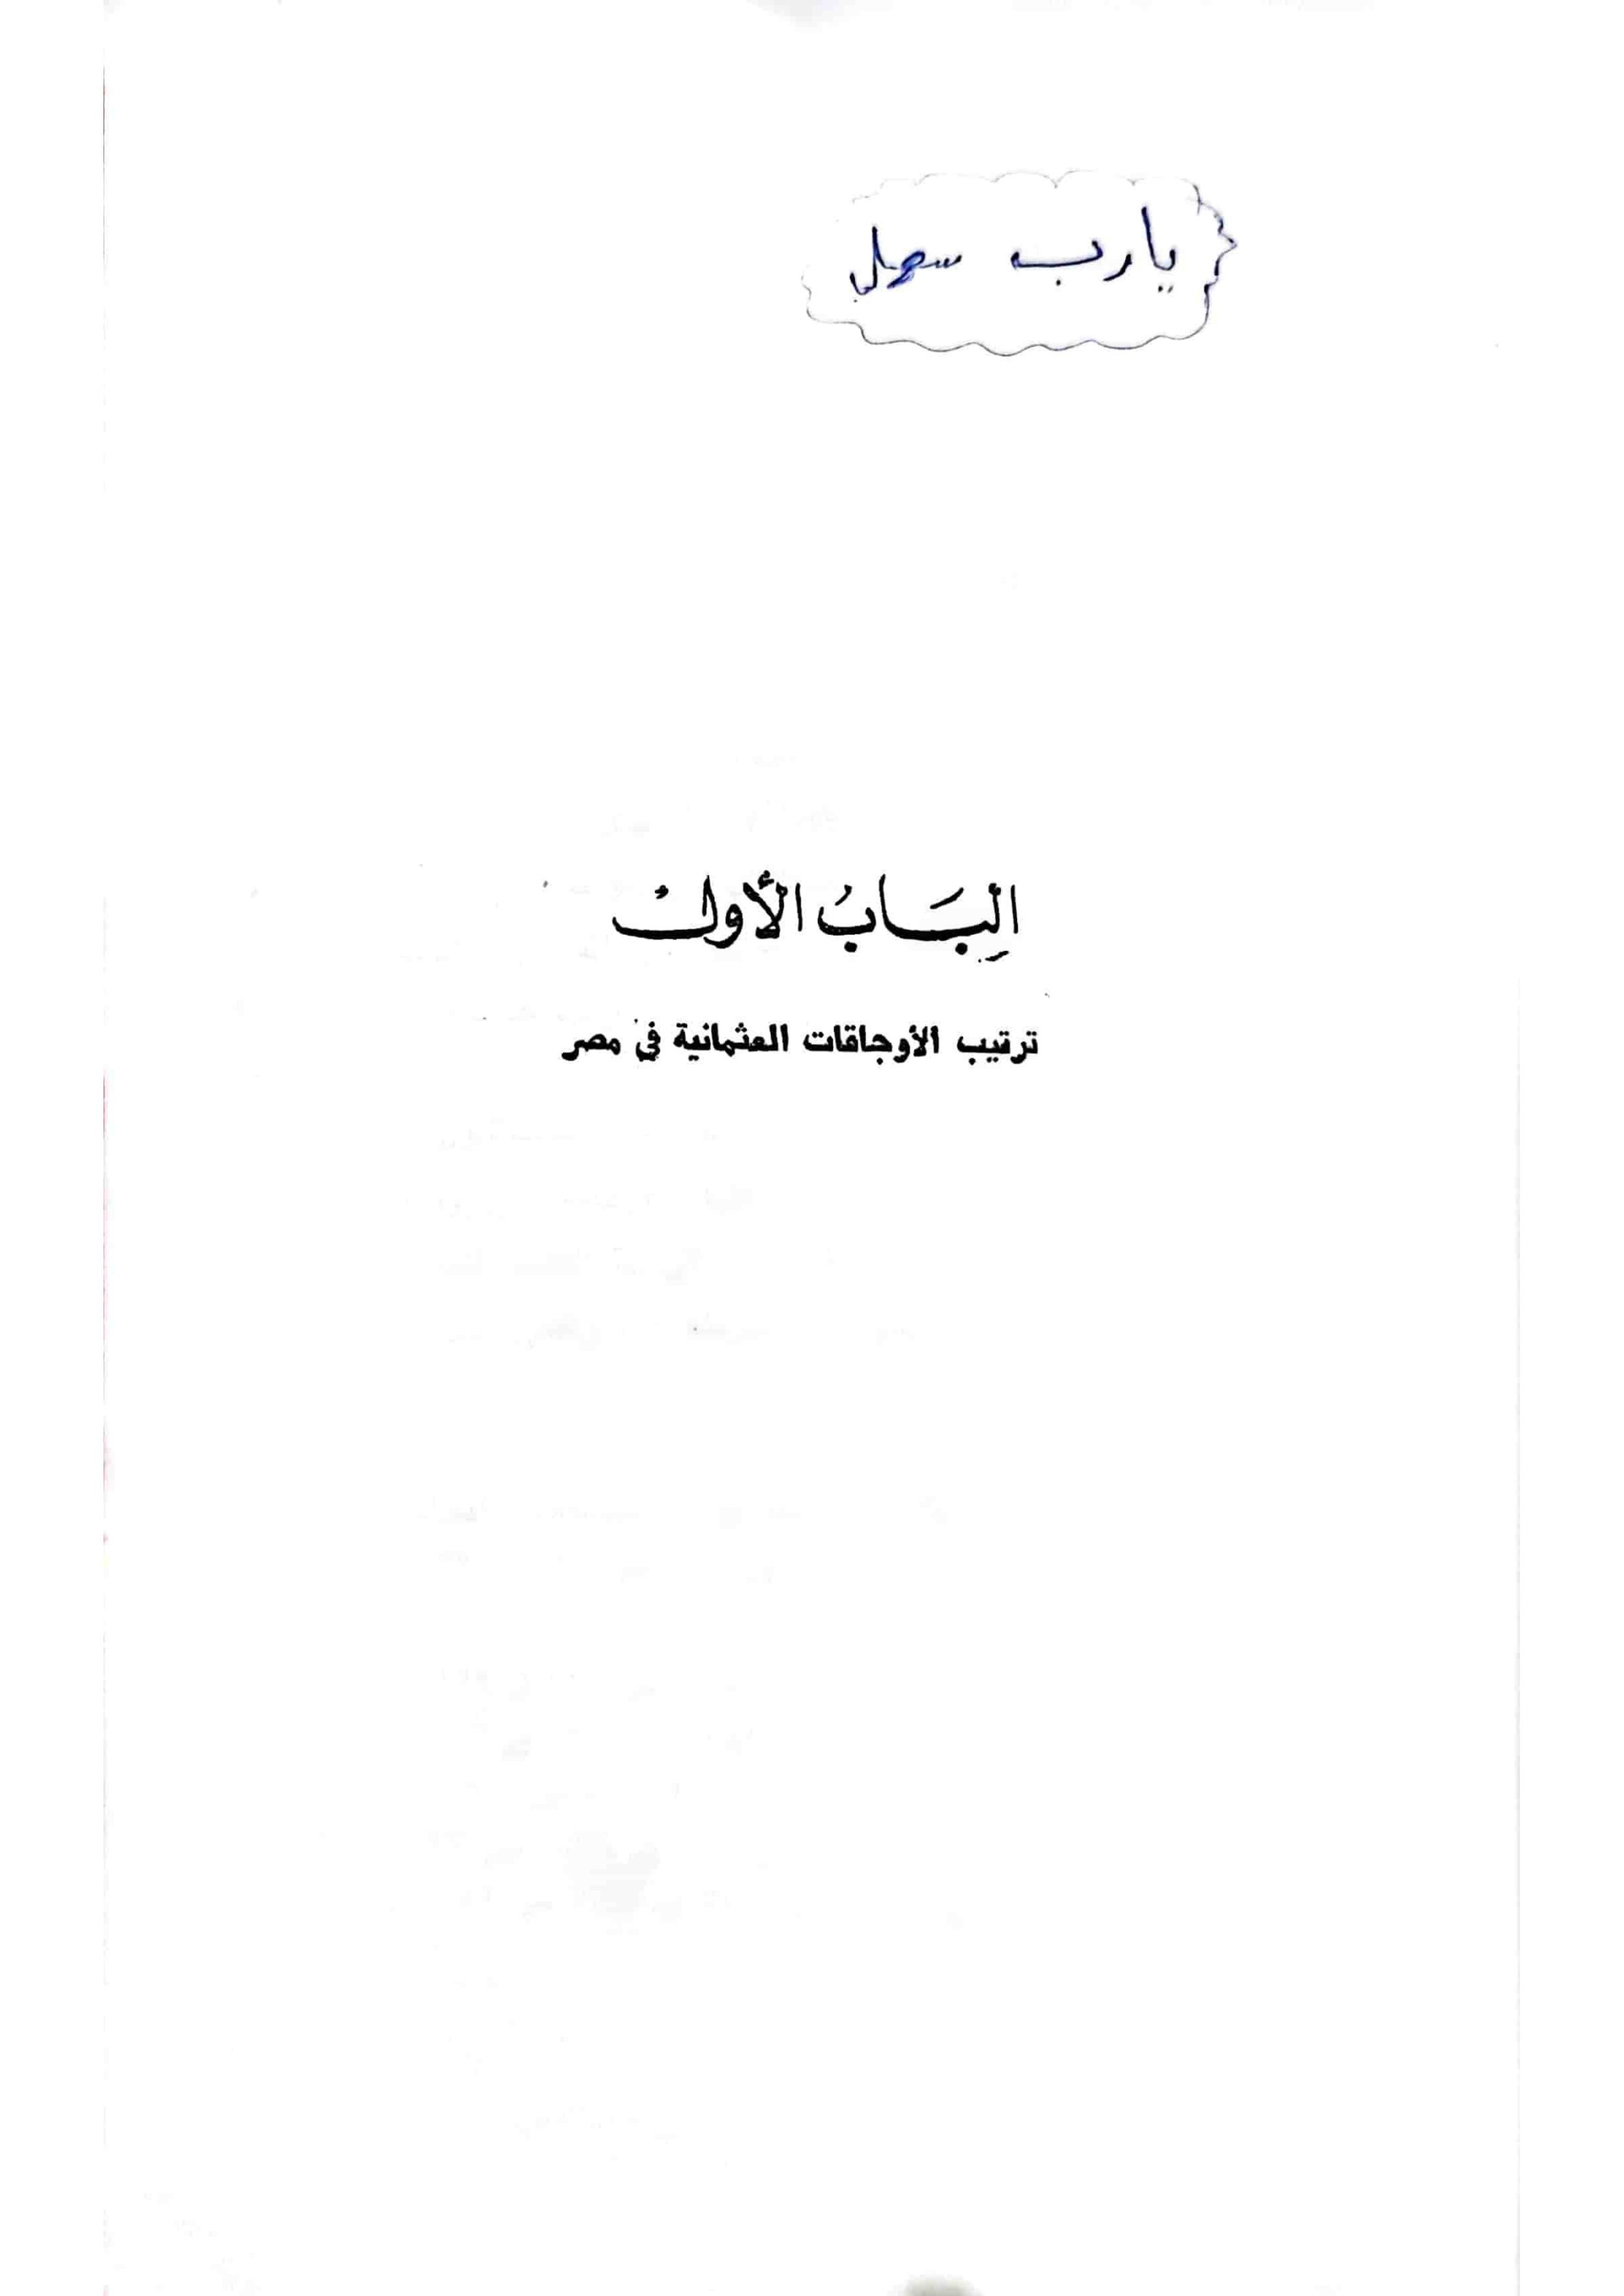 يارب سهل
الِبَابُ الأولُ
ترتيب الأوجاقات العثمانية في مصر